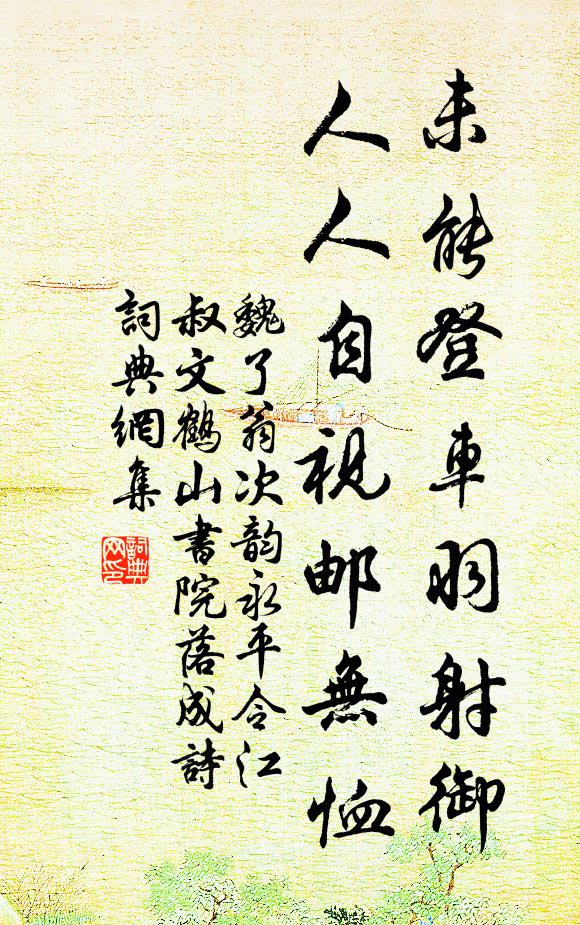 未能登車明射御
人人自視邮無恤
魏了翁次韵永平令江
叔文鶴山書院落成詩
詞典網集
詞典
网印